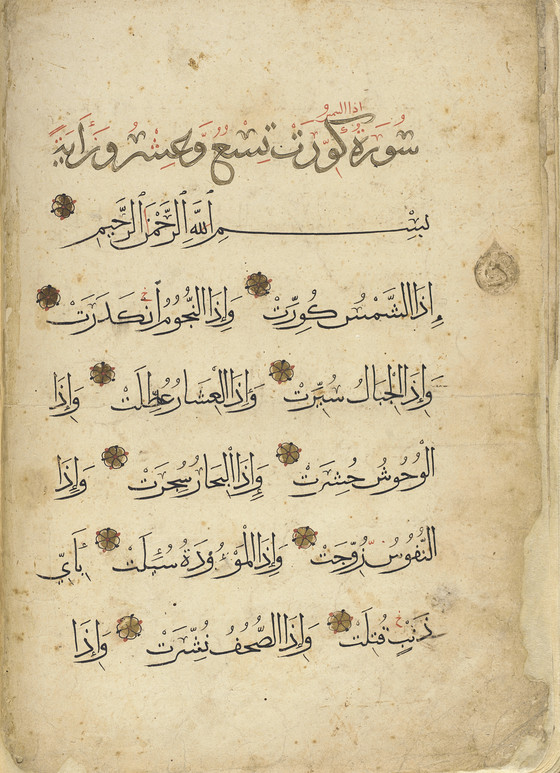 اذا الشمس
سُورَةُ كُوِّرَتْ تِسْعٌ وَعِشْرُونَ اٰيَةً
بِسْمِ اللَّهِ الرَّحْمَٰنِ الرَّحِيمِ
إِذَا الشَّمْسُ كُوِّرَتْ وَإِذَا النُّجُومُ انْكَدَرَتْ
وَإِذَا الْجِبَالُ سُيِّرَتْ وَإِذَا الْعِشَارُ عُطِّلَتْ وَإِذَا
الْوُحُوشُ حُشِرَتْ وَإِذَا الْبِحَارُ سُجِرَتْ وَإِذَا
النُّفُوسُ زُوِّجَتْ وَإِذَا الْمَوْءُودَةُ سُئِلَتْ بِأَيِّ
ذَنْبٍ قُتِلَتْ وَإِذَا الصُّحُفُ نُشِّرَتْ وَإِذَا